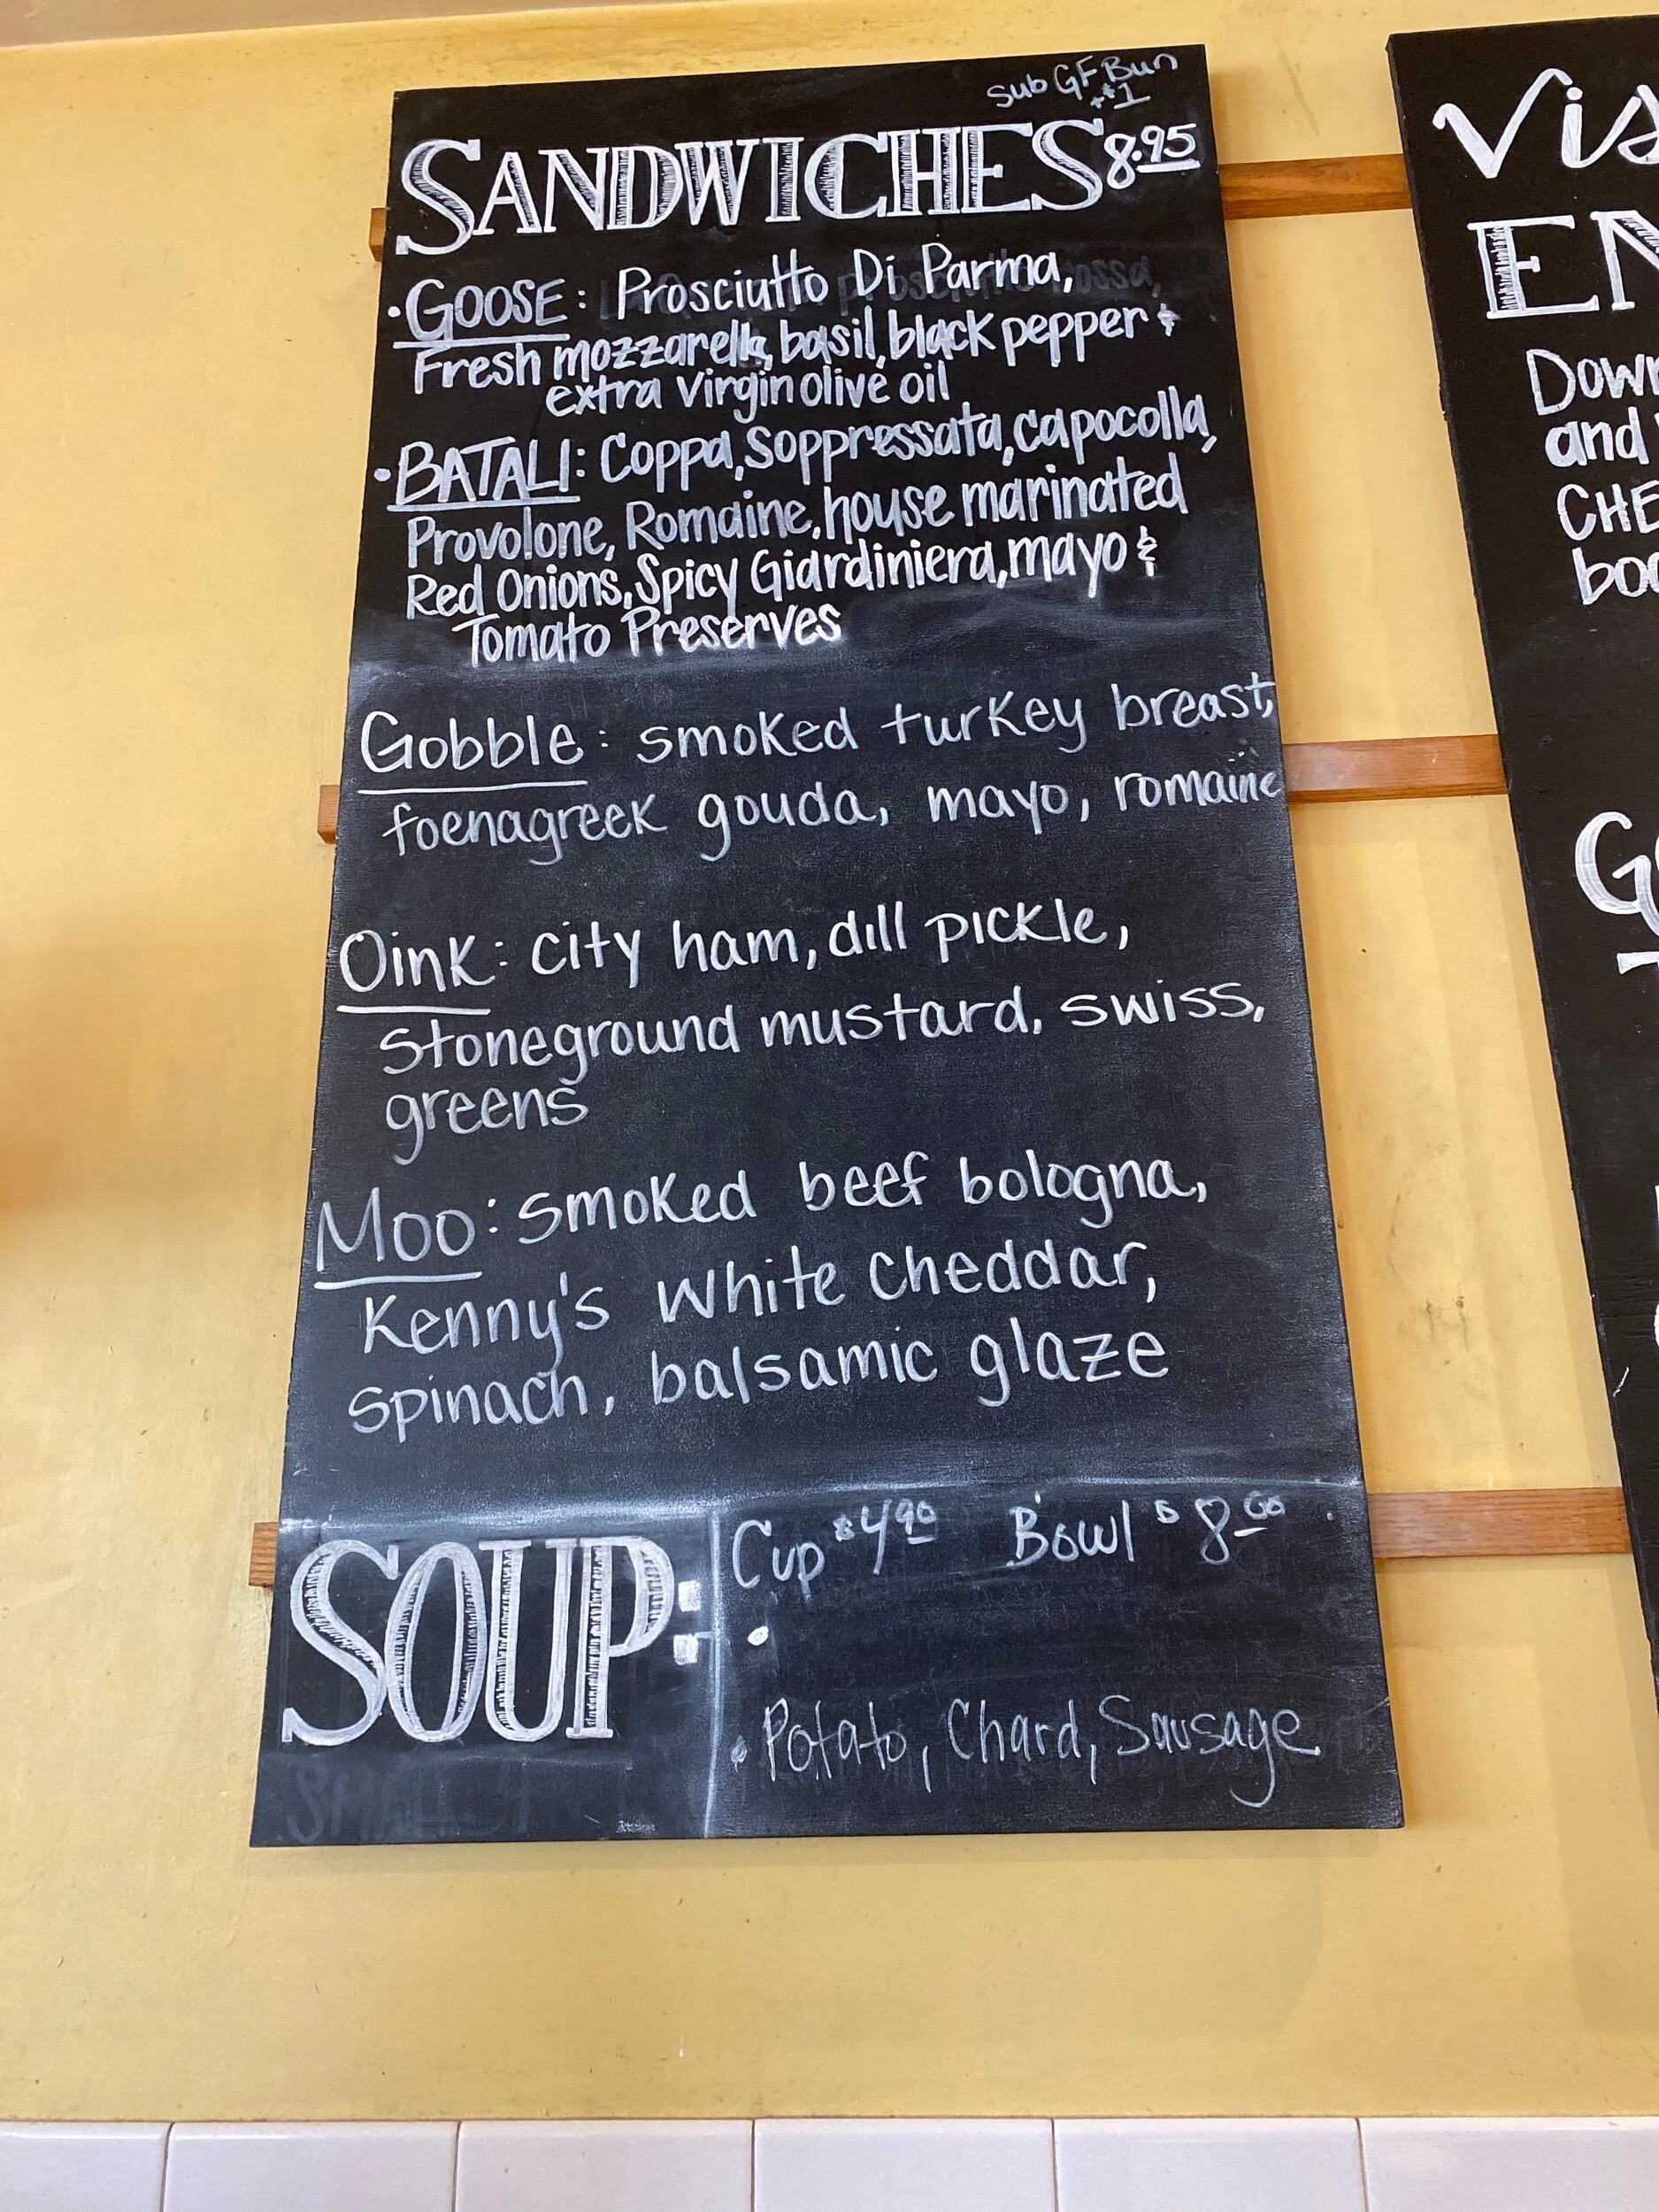 Sub GF Bun
+$1
SANDWICHES 8.95
•GOOSE: Prosciutto Di Parma,
Fresh mozzarella, basil, black pepper &
extra virgin olive oil
•BATALI: Coppa, Soppressata, capocolla,
Provolone, Romaine, house marinated
Red Onions, Spicy Giardiniera, mayo &
Tomato Preserves
Gobble: smoked turkey breast,
foenagreek gouda, mayo, romaine
Oink: city ham, dill pickle,
stoneground mustard, swiss,
greens
Moo: smoked beef bologna,
Kenny's White Cheddar,
spinach, balsamic glaze
SOUP:
Cup $4.90 Bowl $8.00
•
• Potato, Chard, Sausage
Vis
EN
Down
and
CHE
boa